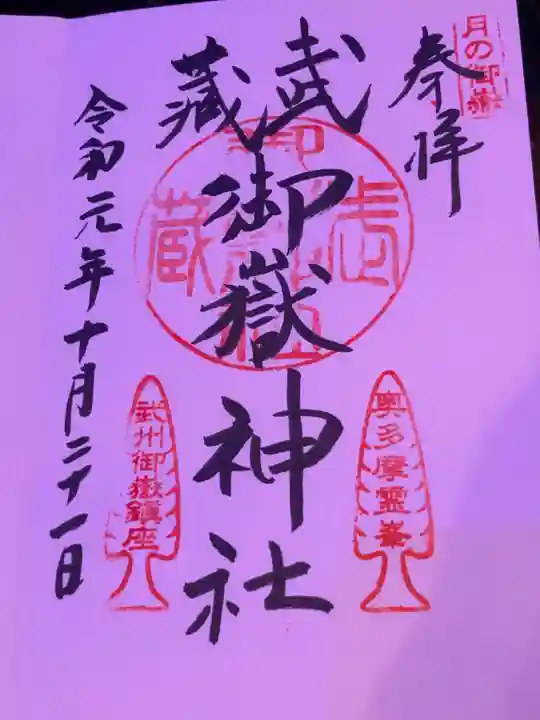 月の御嶽
奉拝
武蔵
御嶽神社
奥多摩霊峯
武州御嶽鎮座
令和元年十月二十一日